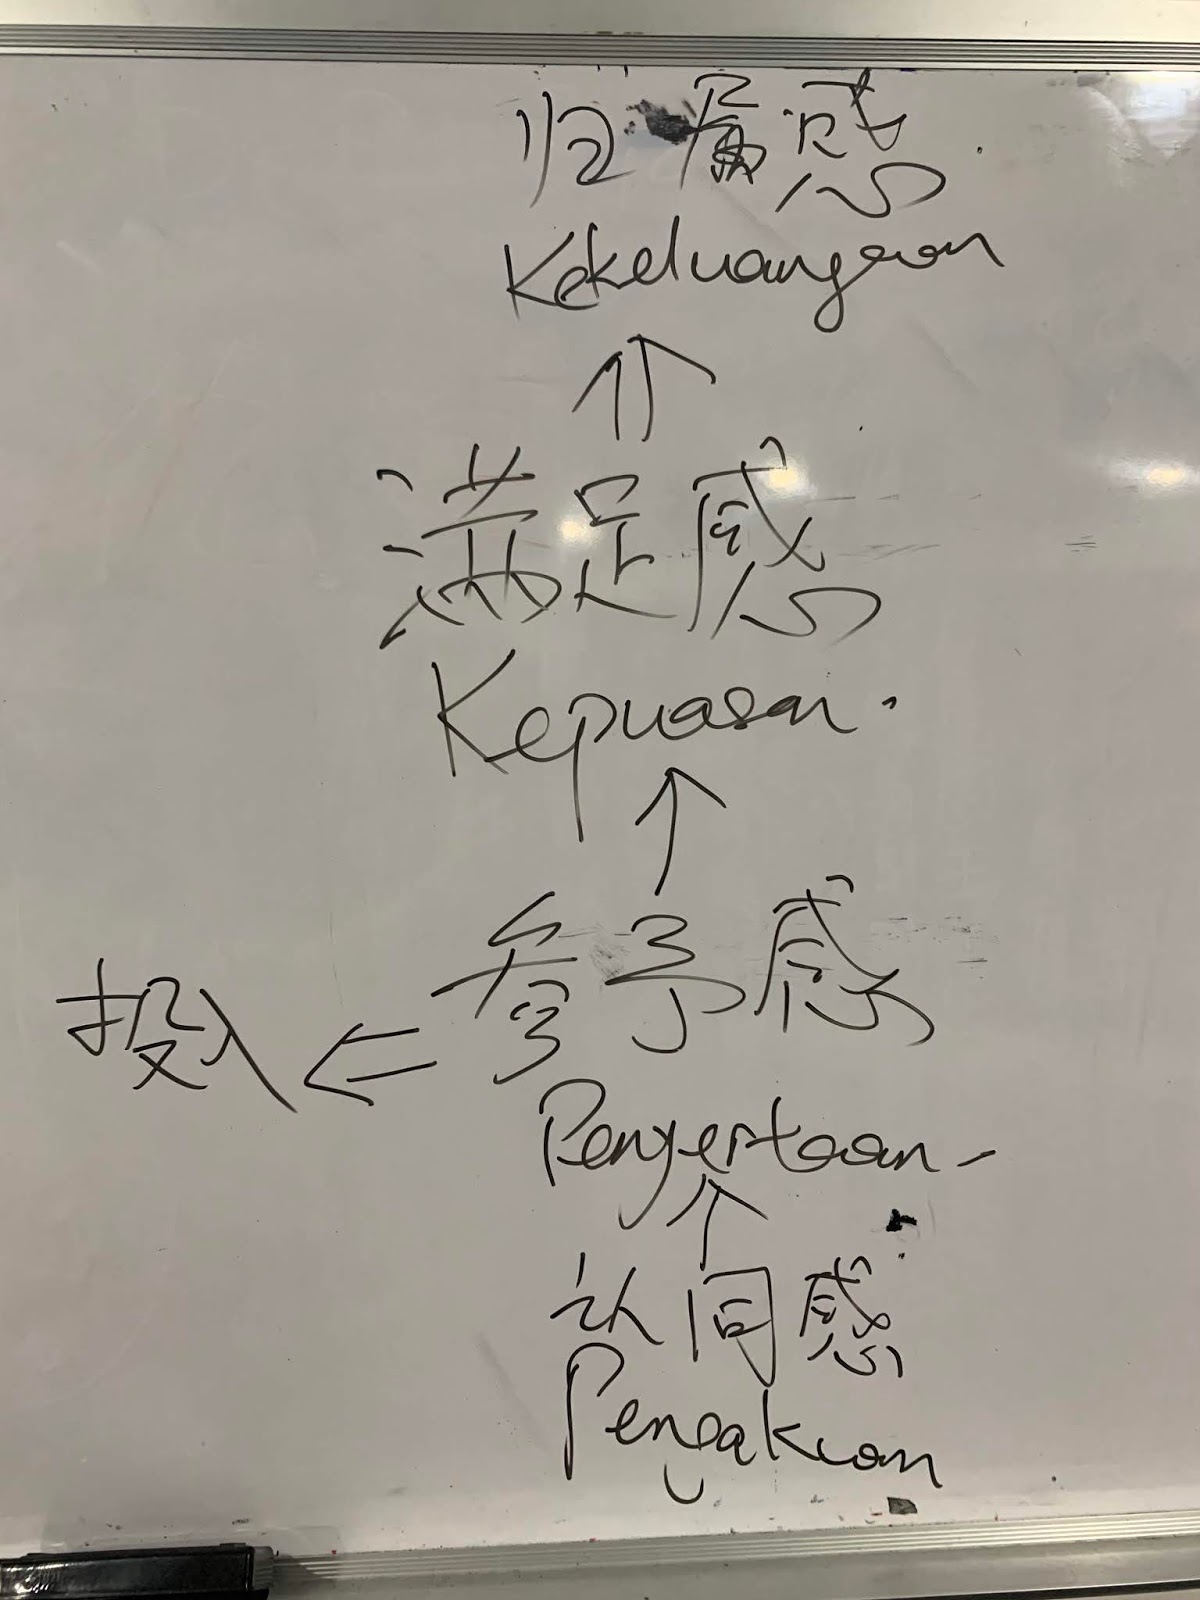 归属感
Kekeluangaan
↑
满足感
Kepuasan.
↑
参予感
投入 ⇐
Penyertaan
↑
认同感
Pengakuan